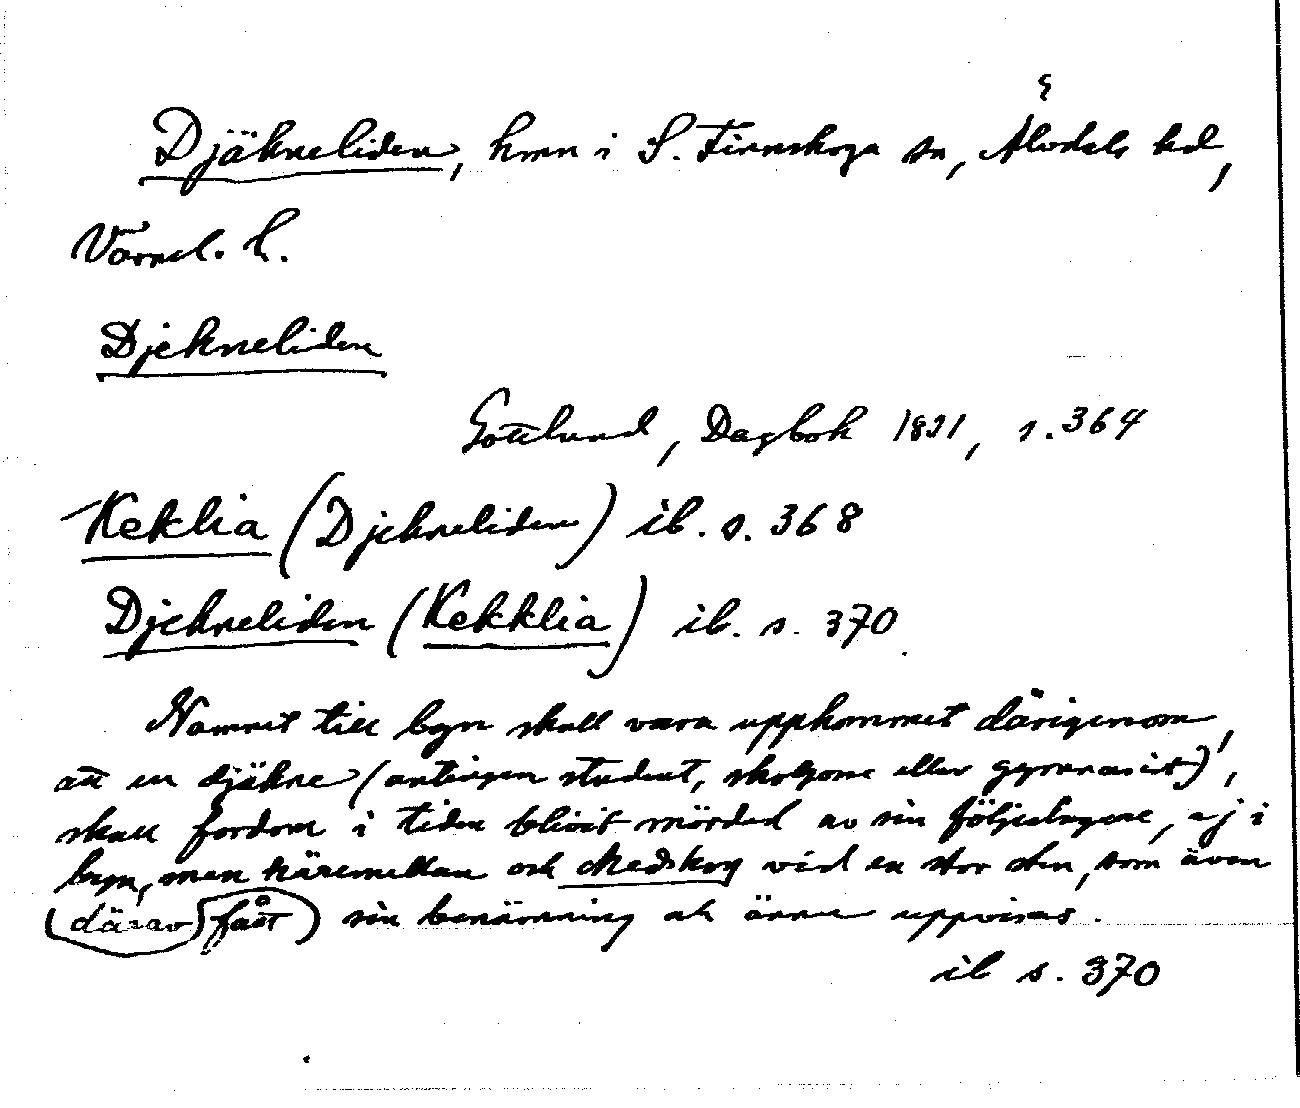 Djäkneliden, hmn i S. Finnskoga sn, Älvdals hd,
Värml. l.
Djekneliden
Gottlund, Dagbok 1821, s. 364
Keklia (Djekneliden) ib. s. 368
Djekneliden (Kekklia) ib. s. 370
Namnet till byn skall vara uppkommet därigenom,
att en djäkne (antingen student, skolgosse eller gymnasist),
skall fordom i tiden blivit mördad av sin följeslagare, ej i
byn, men häremellan och Medskog vid en stor sten, som även
därav fått sin benämning och ännu uppvisas.
ib s. 370